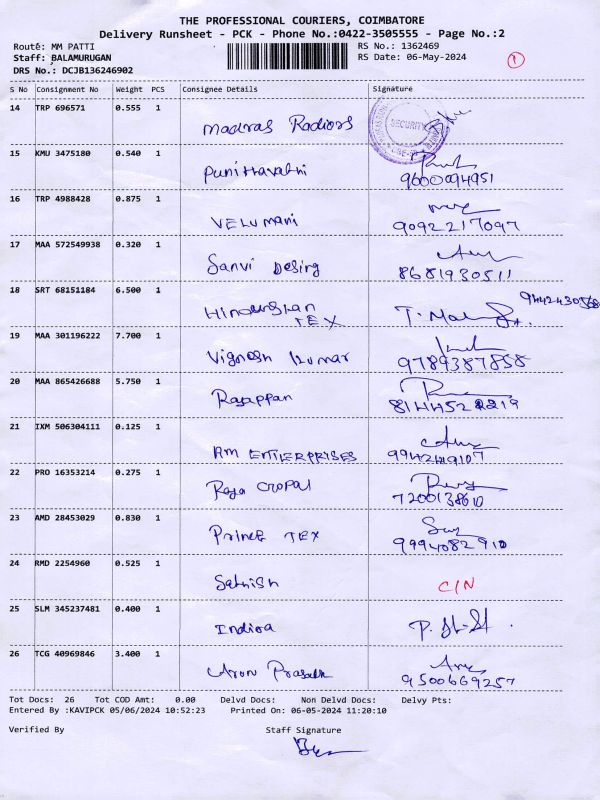 THE PROFESSIONAL COURIERS, COIMBATORE
Delivery Runsheet - PCK - Phone No.:0422-3505555 - Page No.:2
Route: MM PATTI RS No.: 1362469
Staff: BALAMURUGAN RS Date: 06-May-2024 1
DRS No.: DCJB136246902
S No Consignment No Weight PCS Consignee Details Signature
14 TRP 696571 0.555 1
Madras Radiors SECURITY
15 KMU 3475180 0.540 1
Punithavathi 9600094951
16 TRP 4988428 0.875 1
VELUMANI 9092217097
17 MAA 572549938 0.320 1
Sanvi Desing 8681930511
18 SRT 68151184 6.500 1 9442430568
Hindusthan
TEX
19 MAA 301196222 7.700 1
Vignesh kumar 9789387858
20 MAA 865426688 5.750 1
Rajappan 8144522219
21 IXM 506304111 0.125 1
RM ENTERPRISES 9942419107
22 PRO 16353214 0.275 1
Raja Gopal 7200138610
23 AMD 28453029 0.830 1
Prince TEX 9994082910
24 RMD 2254960 0.525 1
Sathish C/N
25 SLM 345237481 0.400 1
Indira
26 TCG 40969846 3.400 1
Arun Prasath 9500669257
Tot Docs: 26 Tot COD Amt: 0.00 Delvd Docs: Non Delvd Docs: Delvy Pts:
Entered By :KAVIPCK 05/06/2024 10:52:23 Printed On: 06-05-2024 11:20:10
Verified By Staff Signature